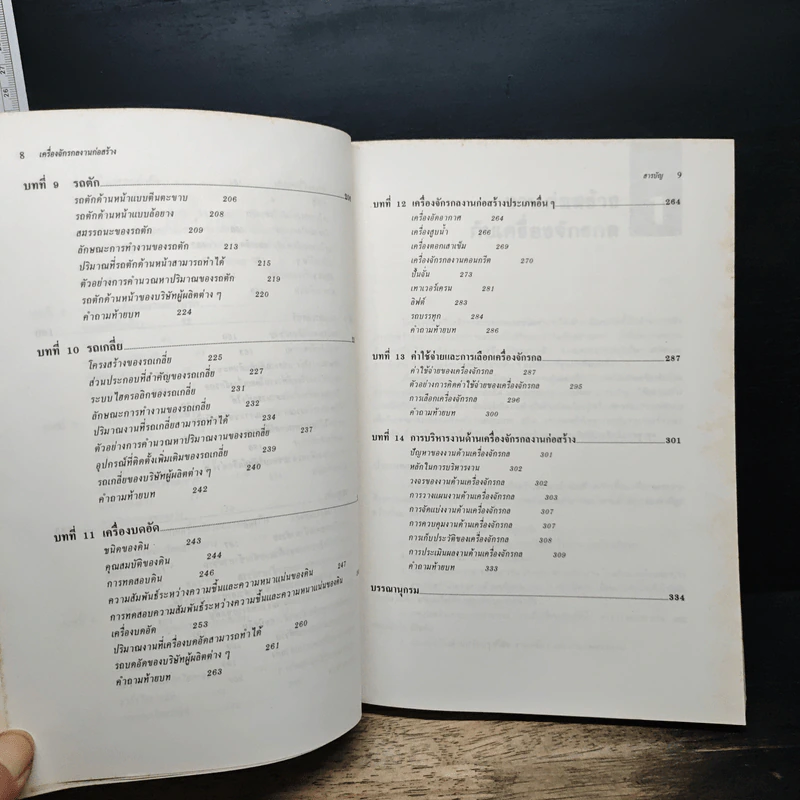 8 เครื่องจักรกลงานก่อสร้าง
บทที่ 9 รถตัก
รถตักด้านหน้าแบบตีนตะขาบ 206
รถตักด้านหน้าแบบล้อยาง 208
สมรรถนะของรถตัก 209
ลักษณะการทำงานของรถตัก 213
ปริมาณที่รถตักด้านหน้าสามารถทำได้ 215
ตัวอย่างการคำนวณหาปริมาณของรถตัก 219
รถตักด้านหน้าของบริษัทผู้ผลิตต่าง ๆ 220
คำถามท้ายบท 224
บทที่ 10 รถเกลี่ย
โครงสร้างของรถเกลี่ย 225
ส่วนประกอบที่สำคัญของรถเกลี่ย 227
ระบบไฮดรอลิกของรถเกลี่ย 231
ลักษณะการทำงานของรถเกลี่ย 232
ปริมาณงานที่รถเกลี่ยสามารถทำได้ 234
ตัวอย่างการคำนวณหาปริมาณงานของรถเกลี่ย 237
อุปกรณ์ที่ติดตั้งเพิ่มเติมของรถเกลี่ย 239
รถเกลี่ยของบริษัทผู้ผลิตต่าง ๆ 240
คำถามท้ายบท 242
บทที่ 11 เครื่องบดอัด
ชนิดของดิน 243
คุณสมบัติของดิน 244
การทดสอบดิน 246
ความสัมพันธ์ระหว่างความชื้นและความหนาแน่นของดิน 247
การทดสอบความสัมพันธ์ระหว่างความชื้นและความหนาแน่นของดิน
เครื่องบดอัด 253
ปริมาณงานที่เครื่องบดอัดสามารถทำได้ 260
รถบดอัดของบริษัทผู้ผลิตต่าง ๆ 261
คำถามท้ายบท 263
สารบัญ 9
บทที่ 12 เครื่องจักรกลงานก่อสร้างประเภทอื่น ๆ 264
เครื่องอัดอากาศ 264
เครื่องสูบน้ำ 266
เครื่องตอกเสาเข็ม 269
เครื่องจักรกลงานคอนกรีต 270
ปั้นจั่น 273
เทาเวอร์เครน 281
ลิฟต์ 283
รถบรรทุก 284
คำถามท้ายบท 286
บทที่ 13 ค่าใช้จ่ายและการเลือกเครื่องจักรกล 287
ค่าใช้จ่ายของเครื่องจักรกล 287
ตัวอย่างการคิดค่าใช้จ่ายของเครื่องจักรกล 295
การเลือกเครื่องจักรกล 296
คำถามท้ายบท 300
บทที่ 14 การบริหารงานด้านเครื่องจักรกลงานก่อสร้าง 301
ปัญหาของงานด้านเครื่องจักรกล 301
หลักในการบริหารงาน 302
วงจรของงานด้านเครื่องจักรกล 302
การวางแผนงานด้านเครื่องจักรกล 303
การจัดแบ่งงานด้านเครื่องจักรกล 307
การควบคุมงานด้านเครื่องจักรกล 307
การเก็บประวัติของเครื่องจักรกล 308
การประเมินผลงานด้านเครื่องจักรกล 309
คำถามท้ายบท 333
บรรณานุกรม 334